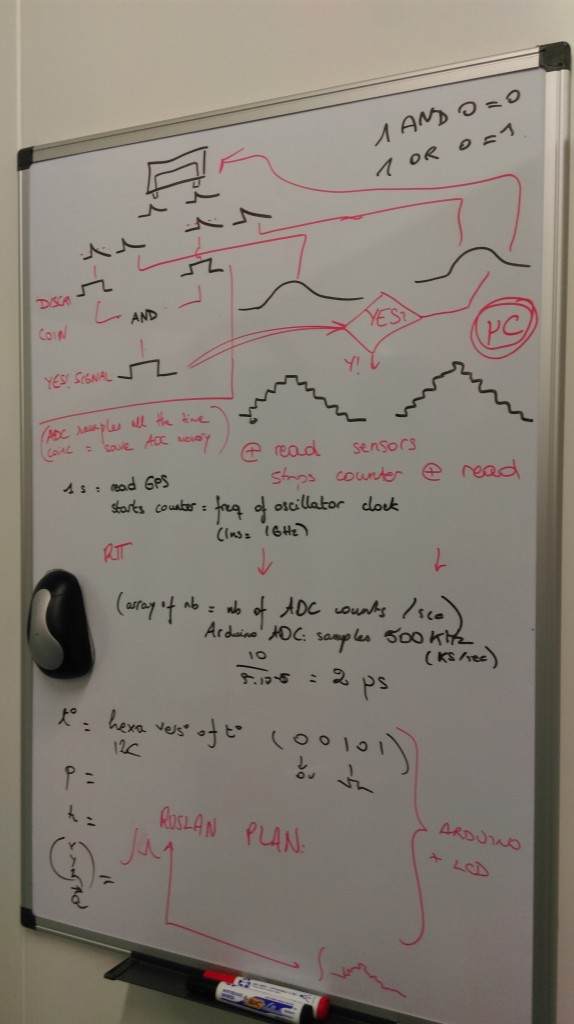 1 AND 0 = 0
1 OR 0 = 1
DISCRI
COIN
AND
YES?
µC
YES! SIGNAL
Y!
(ADC samples all the time
coinc = save ADC memory)
+ read sensors
stops counter + read
1s = read GPS
starts counter = freq of oscillator clock
(1ns = 1GHz)
(array of nb = nb of ADC counts / sec)
Arduino ADC: samples 500 KHz
(KS/sec)
10
= 2 µs
t° = hexa vers° of t° (0 0 1 0 1)
I2C
0V
P =
h =
X
Y
Z
=
ARDUINO
+ LCD
RUSLAN PLAN: